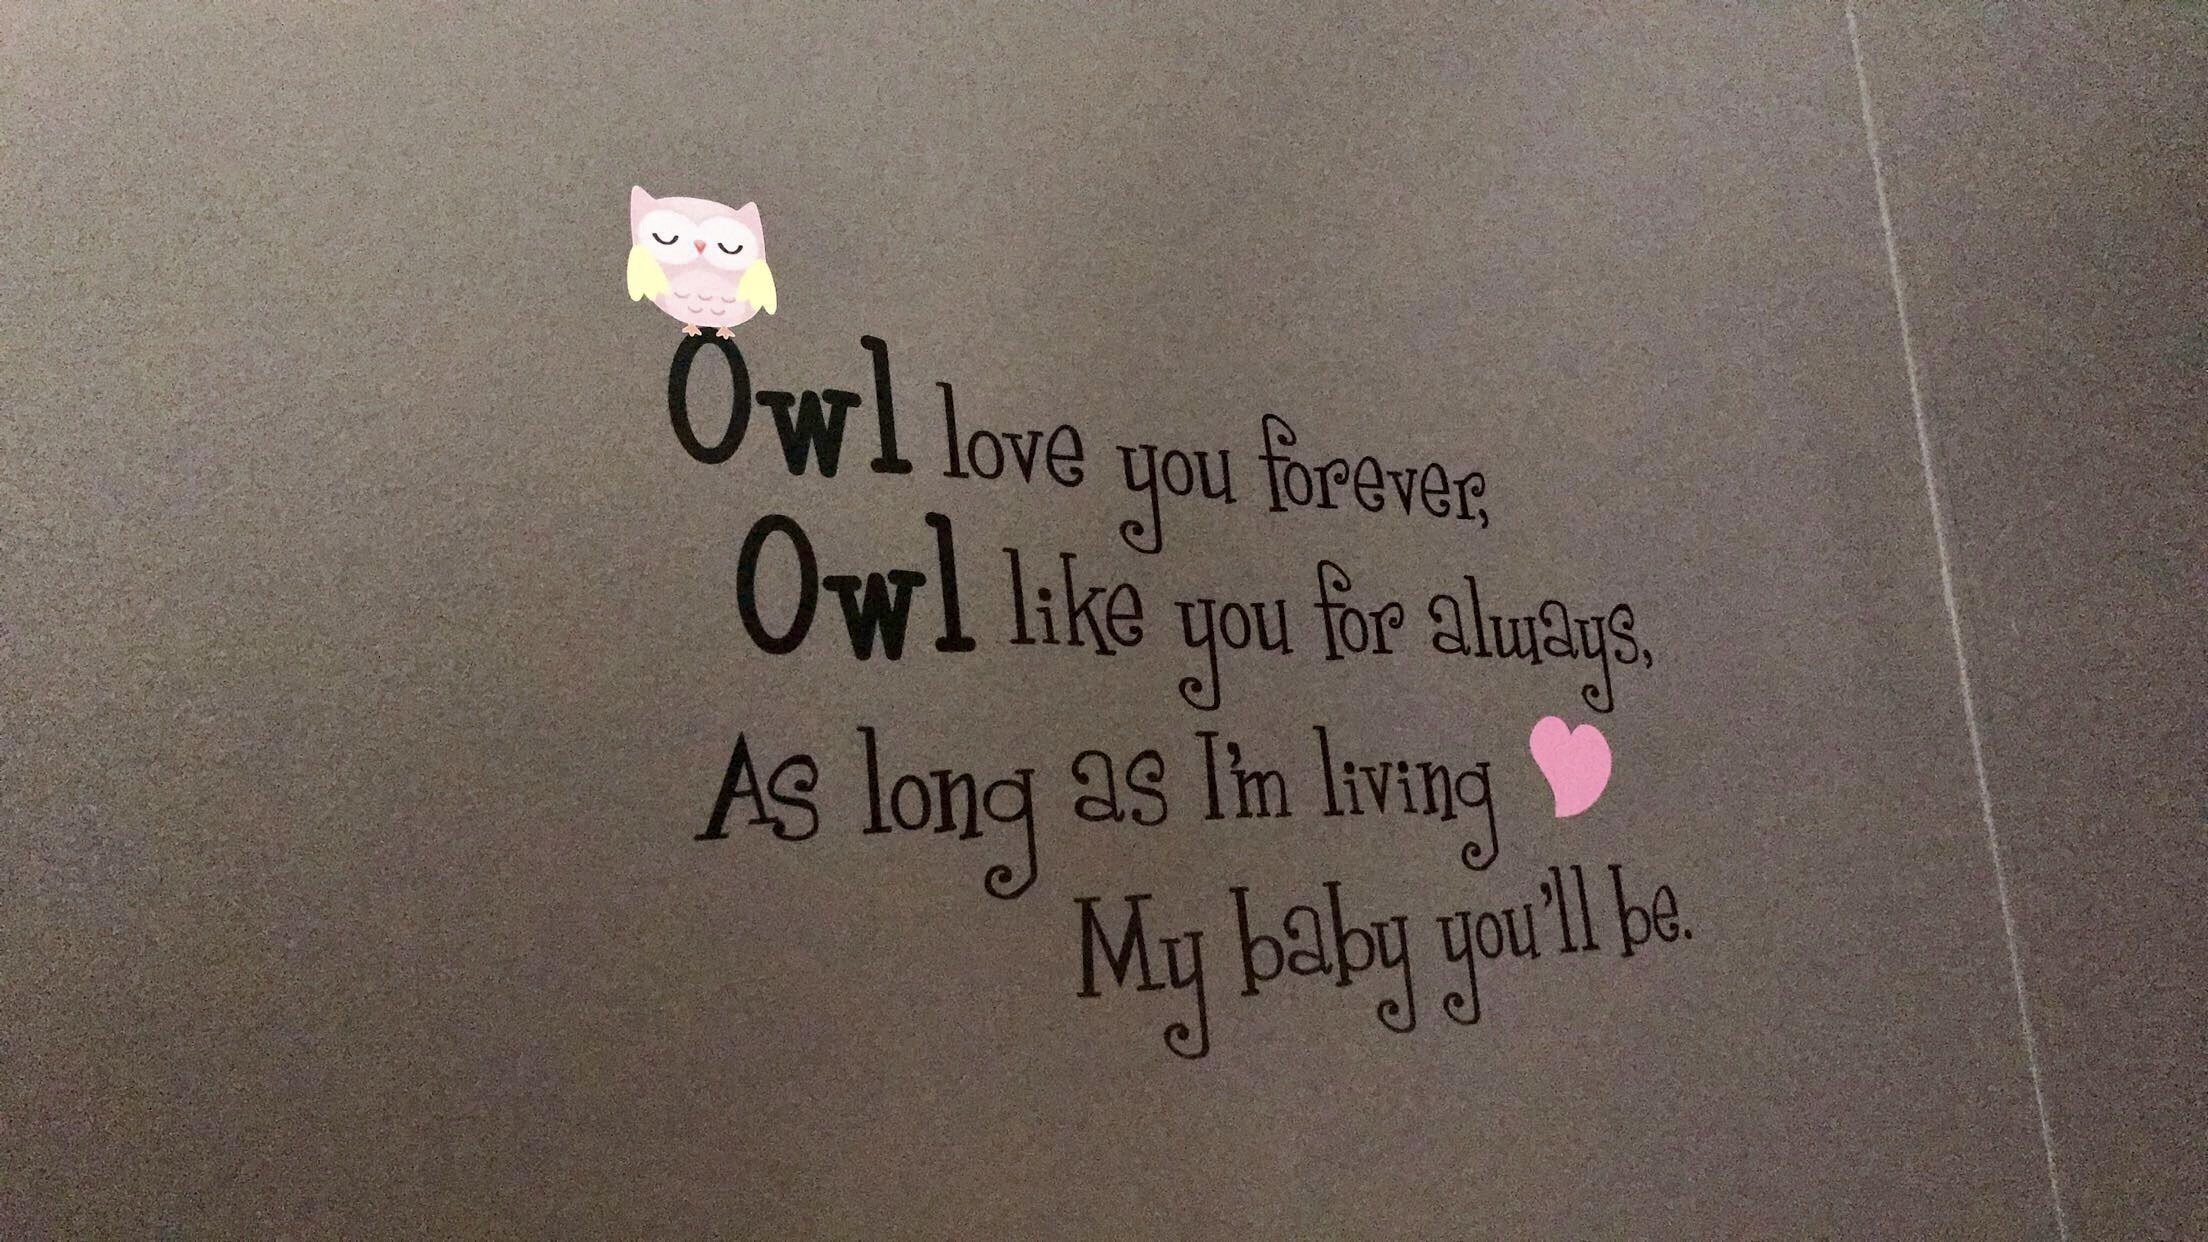 Owl love you forever,
Owl like you for always,
As long as I'm living
My baby you'll be.